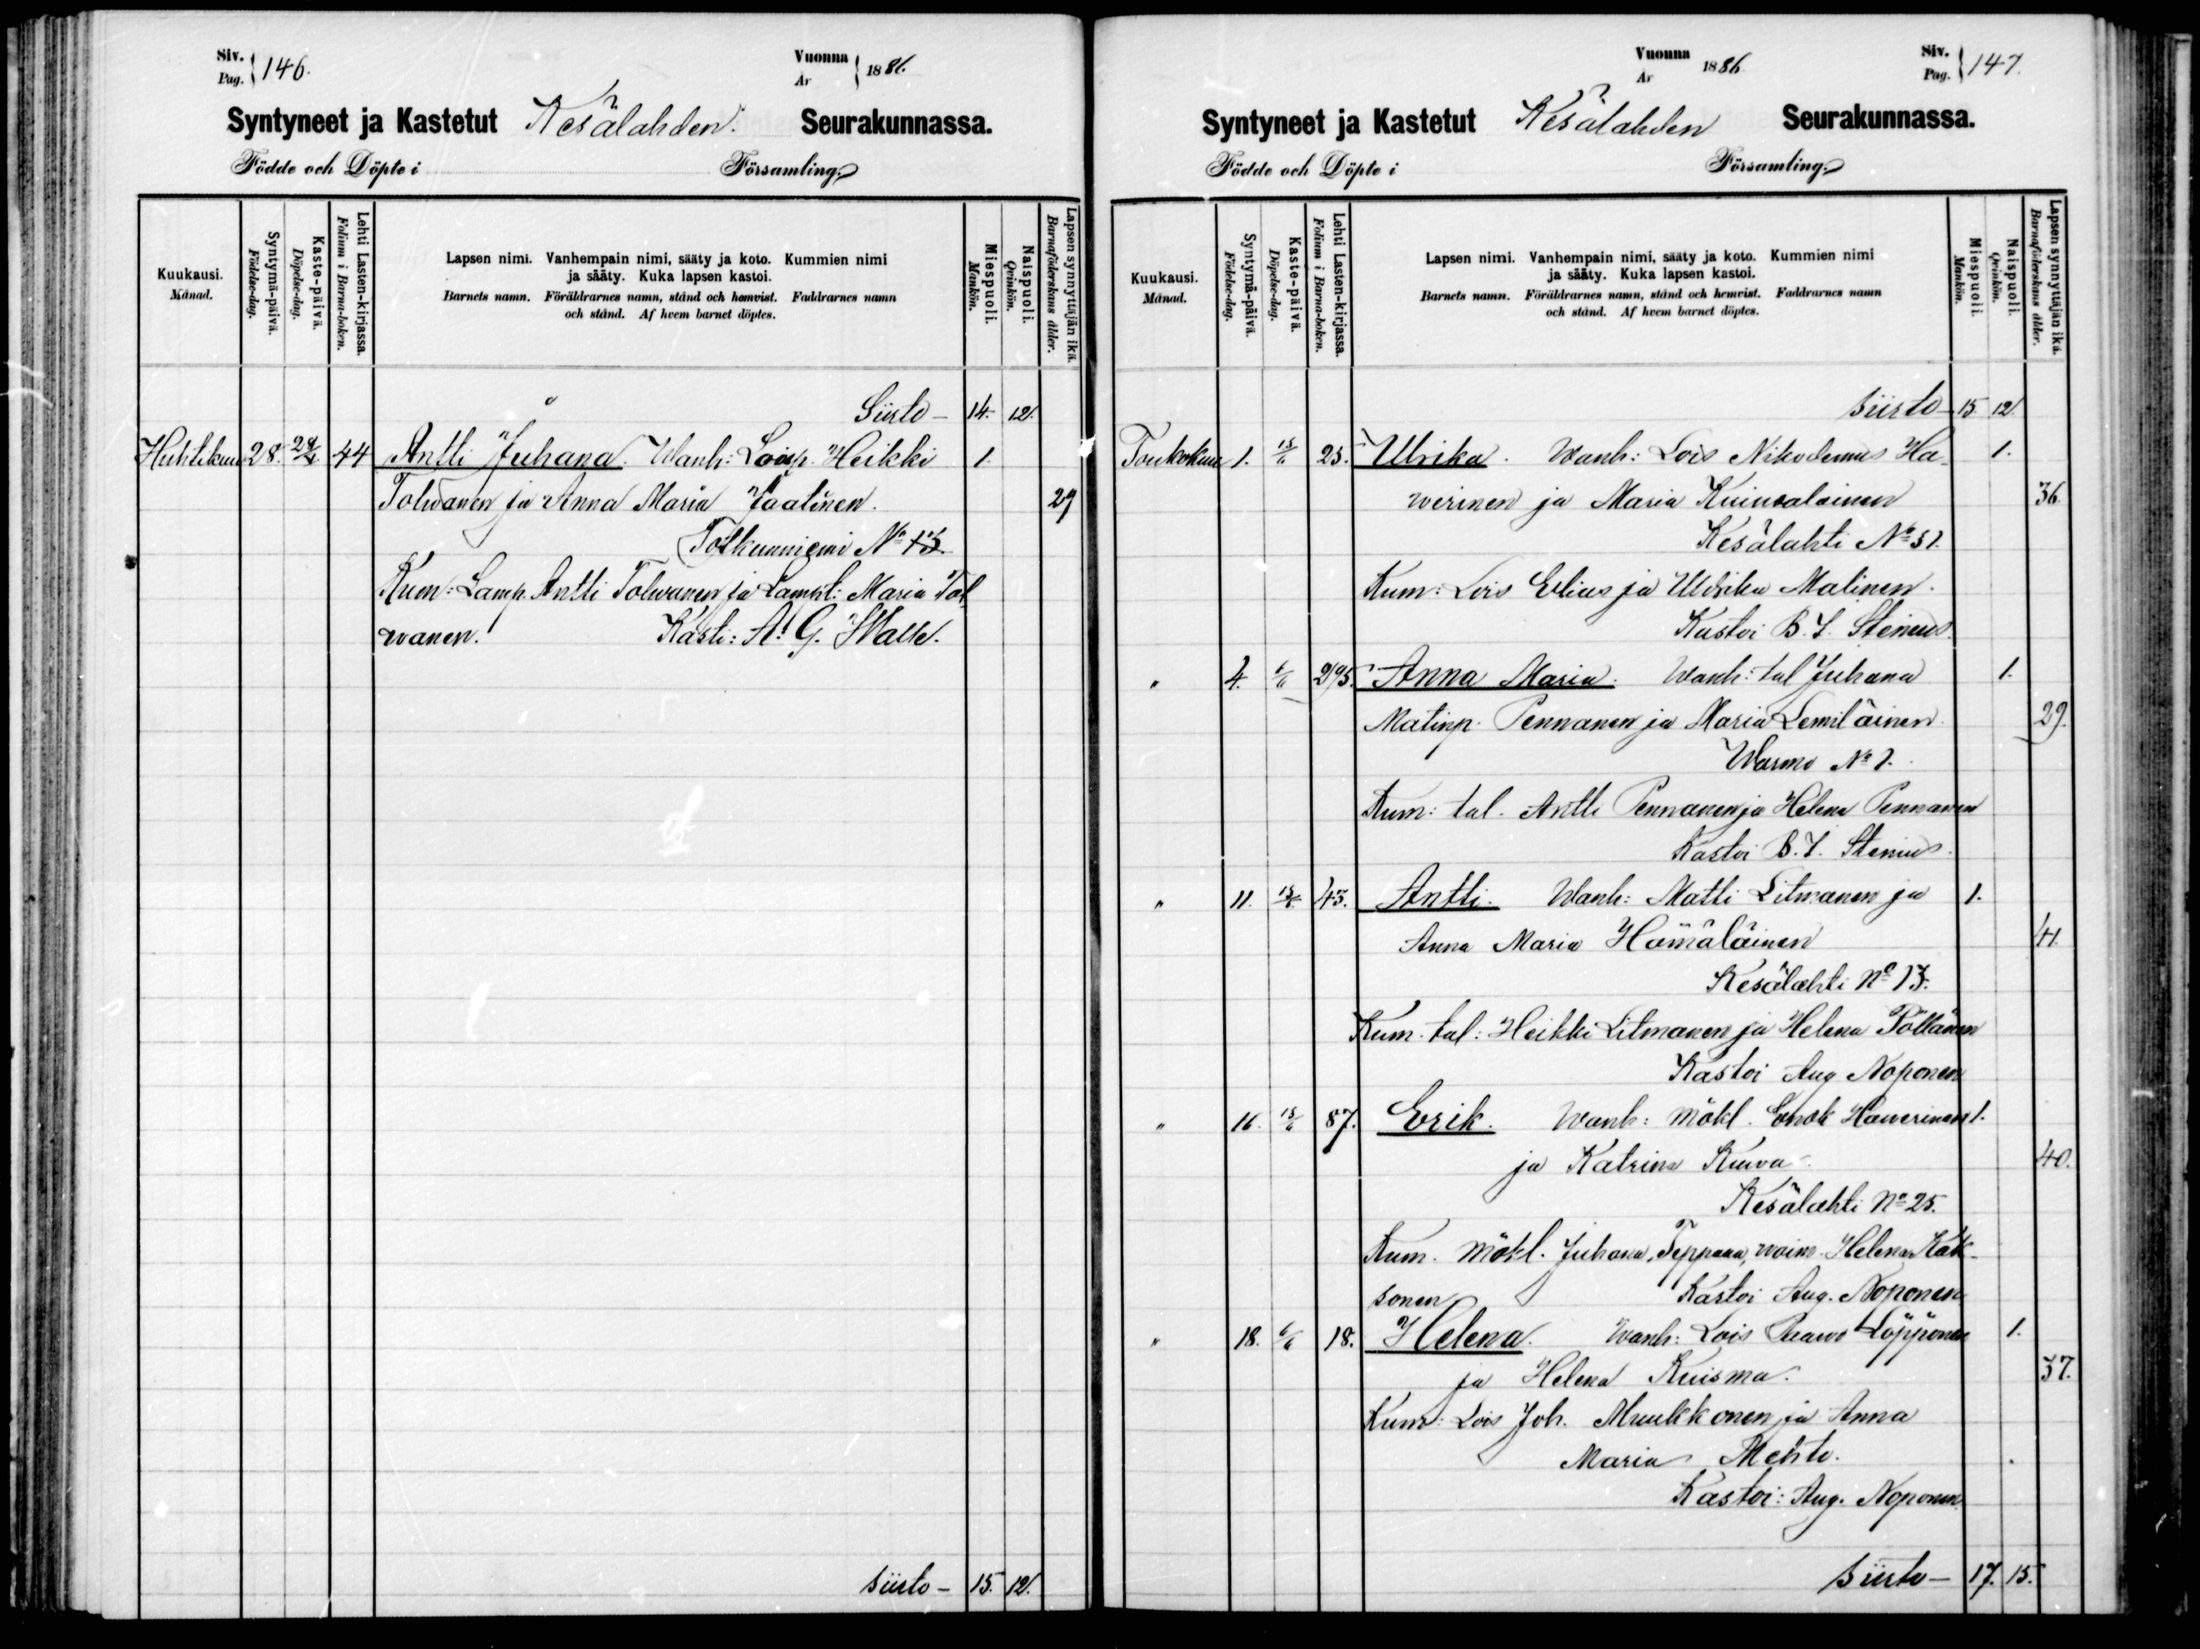 Siv.
Pag. 146.
Vuonna
År 1886.
Syntyneet ja Kastetut Kesälahden. Seurakunnassa.
Födde och Döpte i Församling.
Kuukausi.
Månad.
Syntymä-päivä.
Födelse-dag.
Kaste-päivä.
Döpelse-dag.
Lehti Lasten-kirjassa.
Folium i Barna-boken.
Lapsen nimi. Vanhempain nimi, sääty ja koto. Kummien nimi
ja sääty. Kuka lapsen kastoi.
Barnets namn. Föräldrarnes namn, stånd och hemvist. Faddrarnes namn
och stånd. Af hvem barnet döptes.
Miespuoli.
Mankön.
Naispuoli.
Qvinkön.
Lapsen synnyttäjän ikä.
Barnaföderskans ålder.
Siirto - 14. 12.
Huhtikuu 28. 44 Antti Juhana. Wanh: Loisp. Heikki 1.
Tolwanen ja Anna Maria Jaatinen. 29
Totkunniemi No 13
Kum: Lamp. Antti Tolwanen ja Lampt: Maria Tol
wanen. Kasti: A. G. Walle.
Siirto - 15. 12.
Vuonna
År 1886
Siv.
Pag. 147.
Syntyneet ja Kastetut Kesälahden Seurakunnassa.
Födde och Döpte i Församling.
Kuukausi.
Månad.
Syntymä-päivä.
Födelse-dag.
Kaste-päivä.
Döpelse-dag.
Lehti Lasten-kirjassa.
Folium i Barna-boken.
Lapsen nimi. Vanhempain nimi, sääty ja koto. Kummien nimi
ja sääty. Kuka lapsen kastoi.
Barnets namn. Föräldrarnes namn, stånd och hemvist. Faddrarnes namn
och stånd. Af hvem barnet döptes.
Miespuoli.
Mankön.
Naispuoli.
Qvinkön.
Lapsen synnyttäjän ikä.
Barnaföderskans ålder.
Siirto - 15 12.
Toukokuu 1. 15/6 25. Ulrika. Wanh: Lois Nikodemus Ha- 1.
werinen ja Maria Kuiwalainen 36
Kesälahti No 51.
Kum: Lois Elias ja Ulrika Malinen.
Kastoi B. J. Stenius.
" 4. 6/6 295. Anna Maria. Wanh: tal Juhana 1.
Matinp. Pennanen ja Maria Lemiläinen 29.
Warmo No 1.
Kum: tal. Antti Pennanen ja Helena Pennanen
Kastoi B. J. Stenius.
" 11. 15/6 43. Antti. Wanh: Matti Litmanen ja 1.
Anna Maria Hämäläinen 41.
Kesälahti No 13.
Kum. tal: Heikki Litmanen ja Helena Pöllänen
Kastoi Aug Noponen
" 16. 15/6 87. Erik. Wanh: Mökl. Enok Hawerinen 1.
ja Katrina Kuwa 40.
Kesälahti No 25.
Kum. Mökl. Juhana Teppana, woim. Helena Kak-
sonen Kastoi Aug. Noponen
" 18. 6/6 18. Helena. Wanh: Lois Paawo Löppönen 1.
ja Helena Kuisma. 37.
Kum: Lois Joh. Muukkonen ja Anna
Maria Mehto.
Kastoi: Aug. Noponen
Siirto - 17. 15.